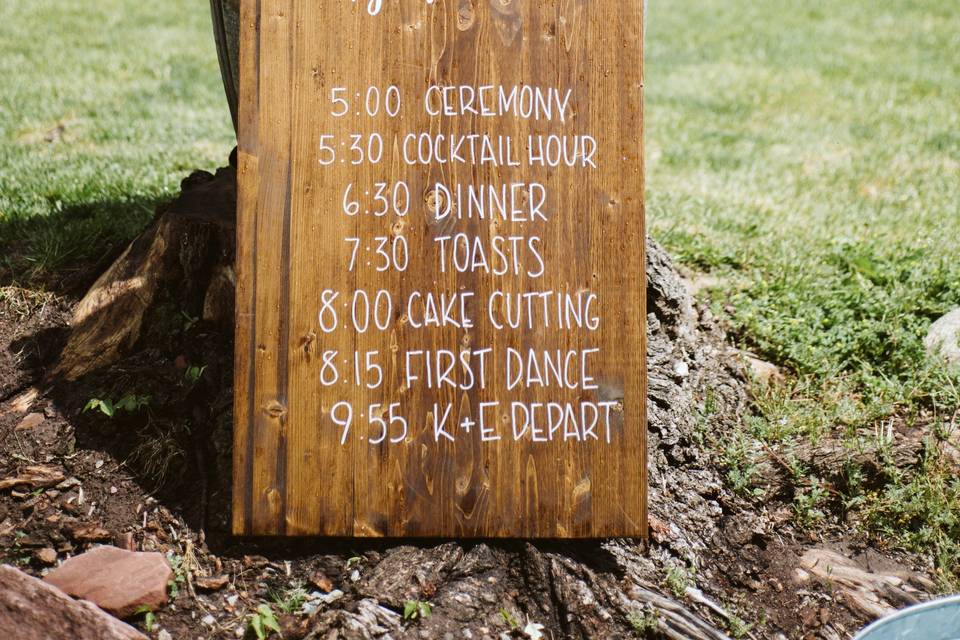 5:00 CEREMONY
5:30 COCKTAIL HOUR
6:30 DINNER
7:30 TOASTS
8:00 CAKE CUTTING
8:15 FIRST DANCE
9:55 K+E DEPART